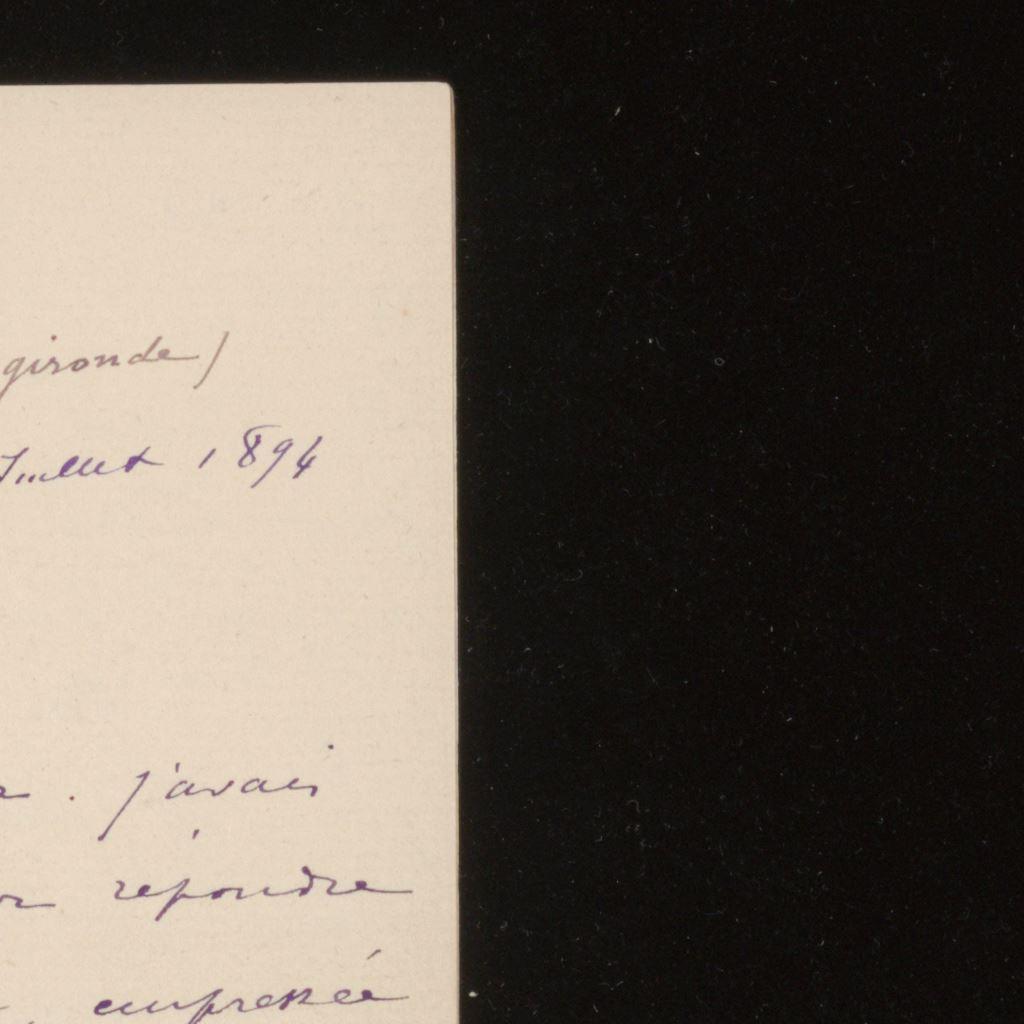 gironde)
Juillet 1894
j'avais
répondre
empressée